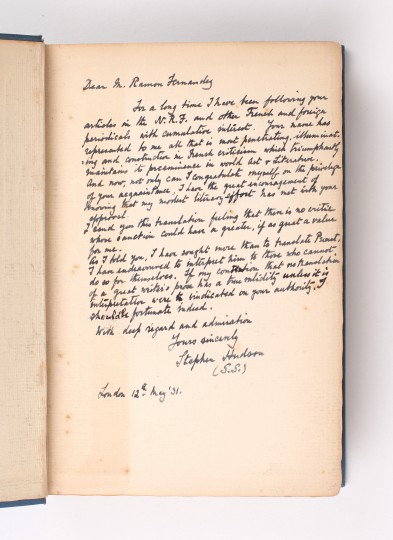 Dear M. Ramon Fernandez
For a long time I have been following your
articles in the N.R.F. and other French and foreign
periodicals with cumulative interest. Your name has
represented to me all that is most penetrating, illuminat-
ing and constructive in French criticism which triumphantly
maintains its preeminence in world Art & Literature.
And now, not only can I congratulate myself on the privilege
of your acquaintance, I have the great encouragement of
knowing that my modest literary effort has met with your
approval.
I send you this translation feeling that there is no critic
whose sanction could have a greater, if as great a value
for me.
As I told you, I have sought more than to translate Proust.
I have endeavoured to interpret him to those who cannot
do so for themselves. If my contention that no translation
of a great writer's prose has a true validity unless it is
interpretation were to be vindicated on your authority, I
should be fortunate indeed.
With deep regard and admiration
Yours sincerely
Stephen Hudson
(S.S.)
London 12th May '31.